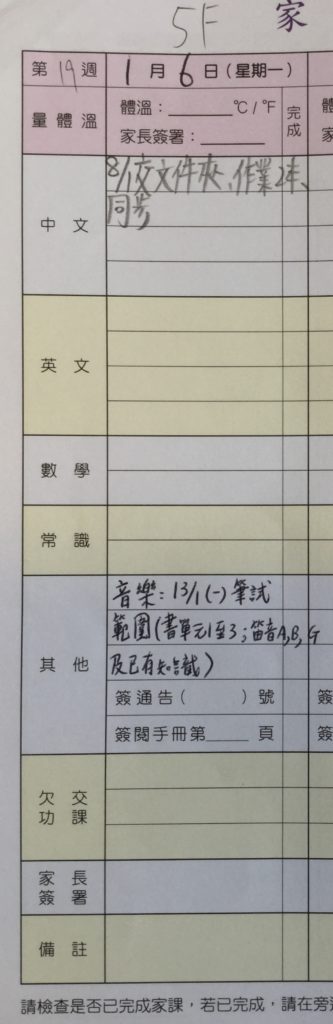 5F 家
第19週 1月6日(星期一)
量體溫 體溫：______℃/℉ 完成
家長簽署：______
中文 8/1交文件夾、作業2本、
同步
英文
數學
常識
其他 音樂：13/1(一)筆試
範圍(書單元1至3；笛音A,B,G
及已有知識)
簽通告( )號 簽
簽閱手冊第____頁 簽
欠交功課
家長簽署
備註
請檢查是否已完成家課，若已完成，請在旁